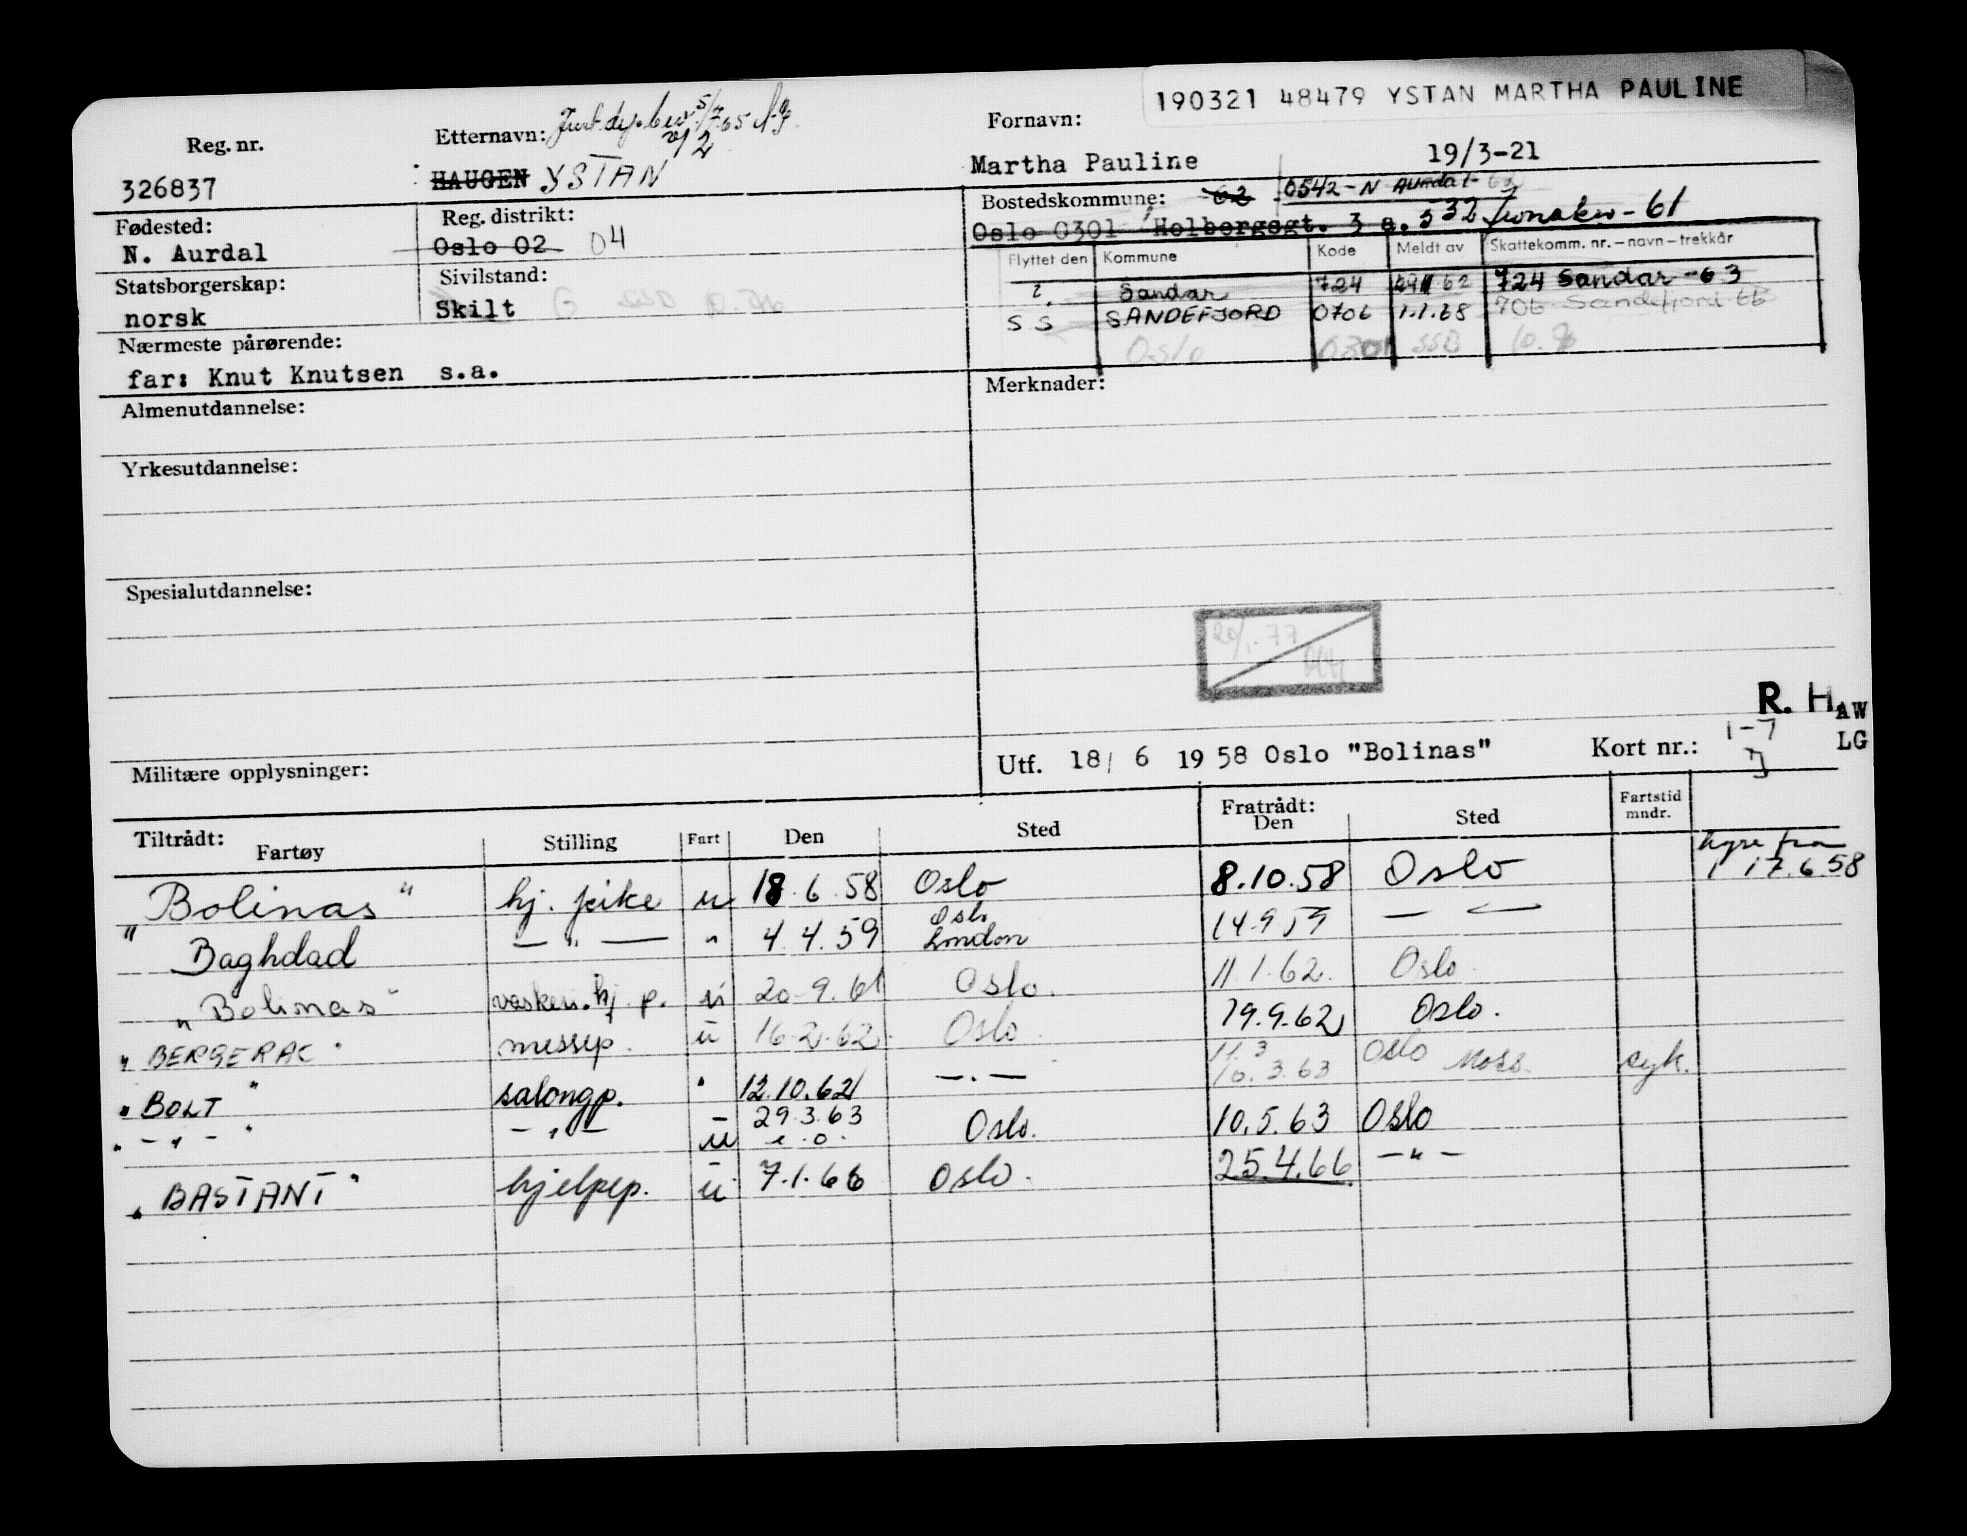 190321 48479 YSTAN MARTHA PAULINE
Reg. nr. Etternavn: Just.dep. 5/7.65 Fornavn:
326837 HAUGEN YSTAN Martha Pauline 19/3-21
Fødested: Reg. distrikt: Bostedskommune: 62 0542-N Aurdal
N. Aurdal Oslo 02 04 Oslo 0301 Holbergsgt. 3 a. 532 Jevnaker-61
Statsborgerskap: Sivilstand: Flyttet den Kommune Kode Meldt av Skattekomm. nr.-navn-trekkår
norsk Skilt ?. Sandar 724 62 724 Sandar-63
SS SANDEFJORD 0706 1.1.68 706 Sandefjord
Nærmeste pårørende: Oslo 0301 SSB
far: Knut Knutsen s.a.
Almenutdannelse: Merknader:
Yrkesutdannelse:
Spesialutdannelse:
20/1.77
R. H AW
LG
Militære opplysninger: Utf. 18/ 6 1958 Oslo "Bolinas" Kort nr.: 1-7
Tiltrådt: Fartøy Stilling Fart Den Sted Fratrådt: Den Sted Fartstid mndr.
"Bolinas" hj. pike u 18.6.58 Oslo 8.10.58 Oslo hyre fra 17.6.58
" Baghdad — " — " 4.4.59 Oslo London 14.9.59 — " —
"Bolinas" vaskeri.hj.p. u 20.9.61 Oslo. 11.1.62. Oslo.
"BERGERAC" messep. u 16.2.62. Oslo. 19.9.62 Oslo.
"BOLT" salongp. " 12.10.62 — . — 11.3 10.3.63 Oslo Moss syk.
" - " - " - " - u 29.3.63 e.o. Oslo. 10.5.63 Oslo
"BASTANT" hjelpep. u 7.1.66 Oslo. 25.4.66 - " -